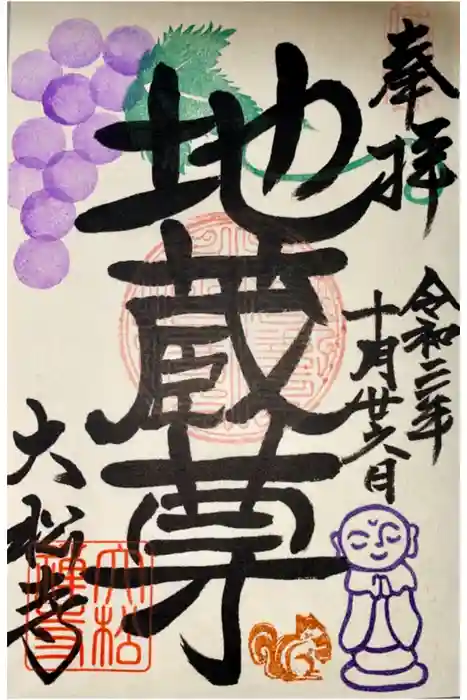 奉拝
令和二年
十月廿六日
地蔵尊
大松寺
大松
禅寺